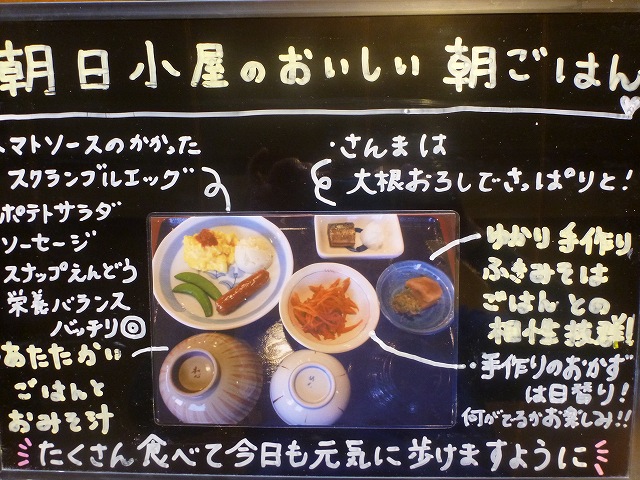 朝日小屋のおいしい 朝ごはん
トマトソースのかかった
スクランブルエッグ
ポテトサラダ
ソーセージ
スナップえんどう
栄養バランス
バッチリ◎
あたたかい
ごはんと
おみそ汁
・さんまは
大根おろしでさっぱりと!
ゆかり手作り
ふきみそは
ごはんとの
相性抜群!
・手作りのおかず
は日替り!
何がでるかお楽しみ!!
たくさん食べて今日も元気に歩けますように